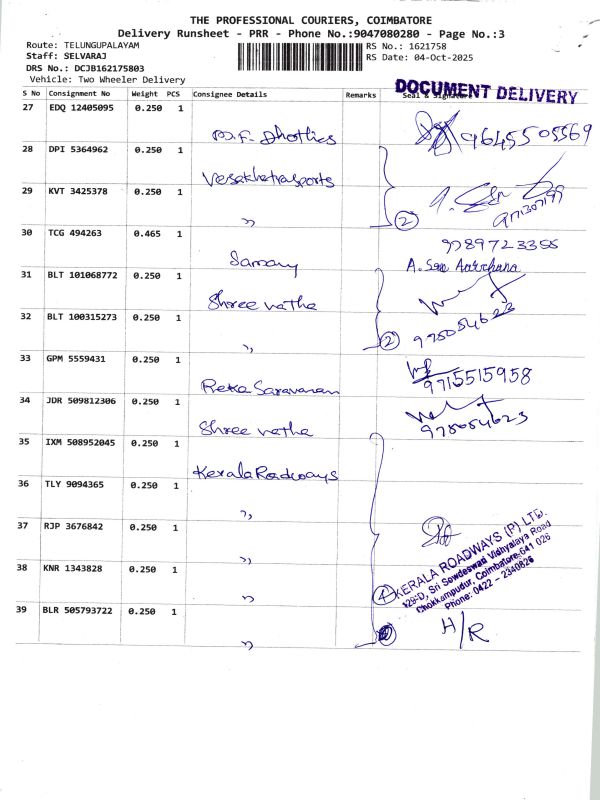 THE PROFESSIONAL COURIERS, COIMBATORE
Delivery Runsheet - PRR - Phone No.:9047080280 - Page No.:3
Route: TELUNGUPALAYAM RS No.: 1621758
Staff: SELVARAJ RS Date: 04-Oct-2025
DRS No.: DCJB162175803
Vehicle: Two Wheeler Delivery
DOCUMENT DELIVERY
S No Consignment No Weight PCS Consignee Details Remarks Seal & Signature
27 EDQ 12405095 0.250 1 9645505569
28 DPI 5364962 0.250 1
29 KVT 3425378 0.250 1 ,, 2
30 TCG 494263 0.465 1 9789723355
31 BLT 101068772 0.250 1 Shree natha
32 BLT 100315273 0.250 1 ,, 2 9750054623
33 GPM 5559431 0.250 1 Reka Saravanan 9715515958
34 JDR 509812306 0.250 1 Shree natha
35 IXM 508952045 0.250 1 Kerala Roadways
36 TLY 9094365 0.250 1 ,,
37 RJP 3676842 0.250 1 ,,
38 KNR 1343828 0.250 1 ,,
39 BLR 505793722 0.250 1 ,,
4 KERALA ROADWAYS (P) LTD.
129-D, Sri Sowdeswari Vidhyalaya Road
Chokkampudur, Coimbatore-641 026
Phone: 0422 - 2340826
H/R